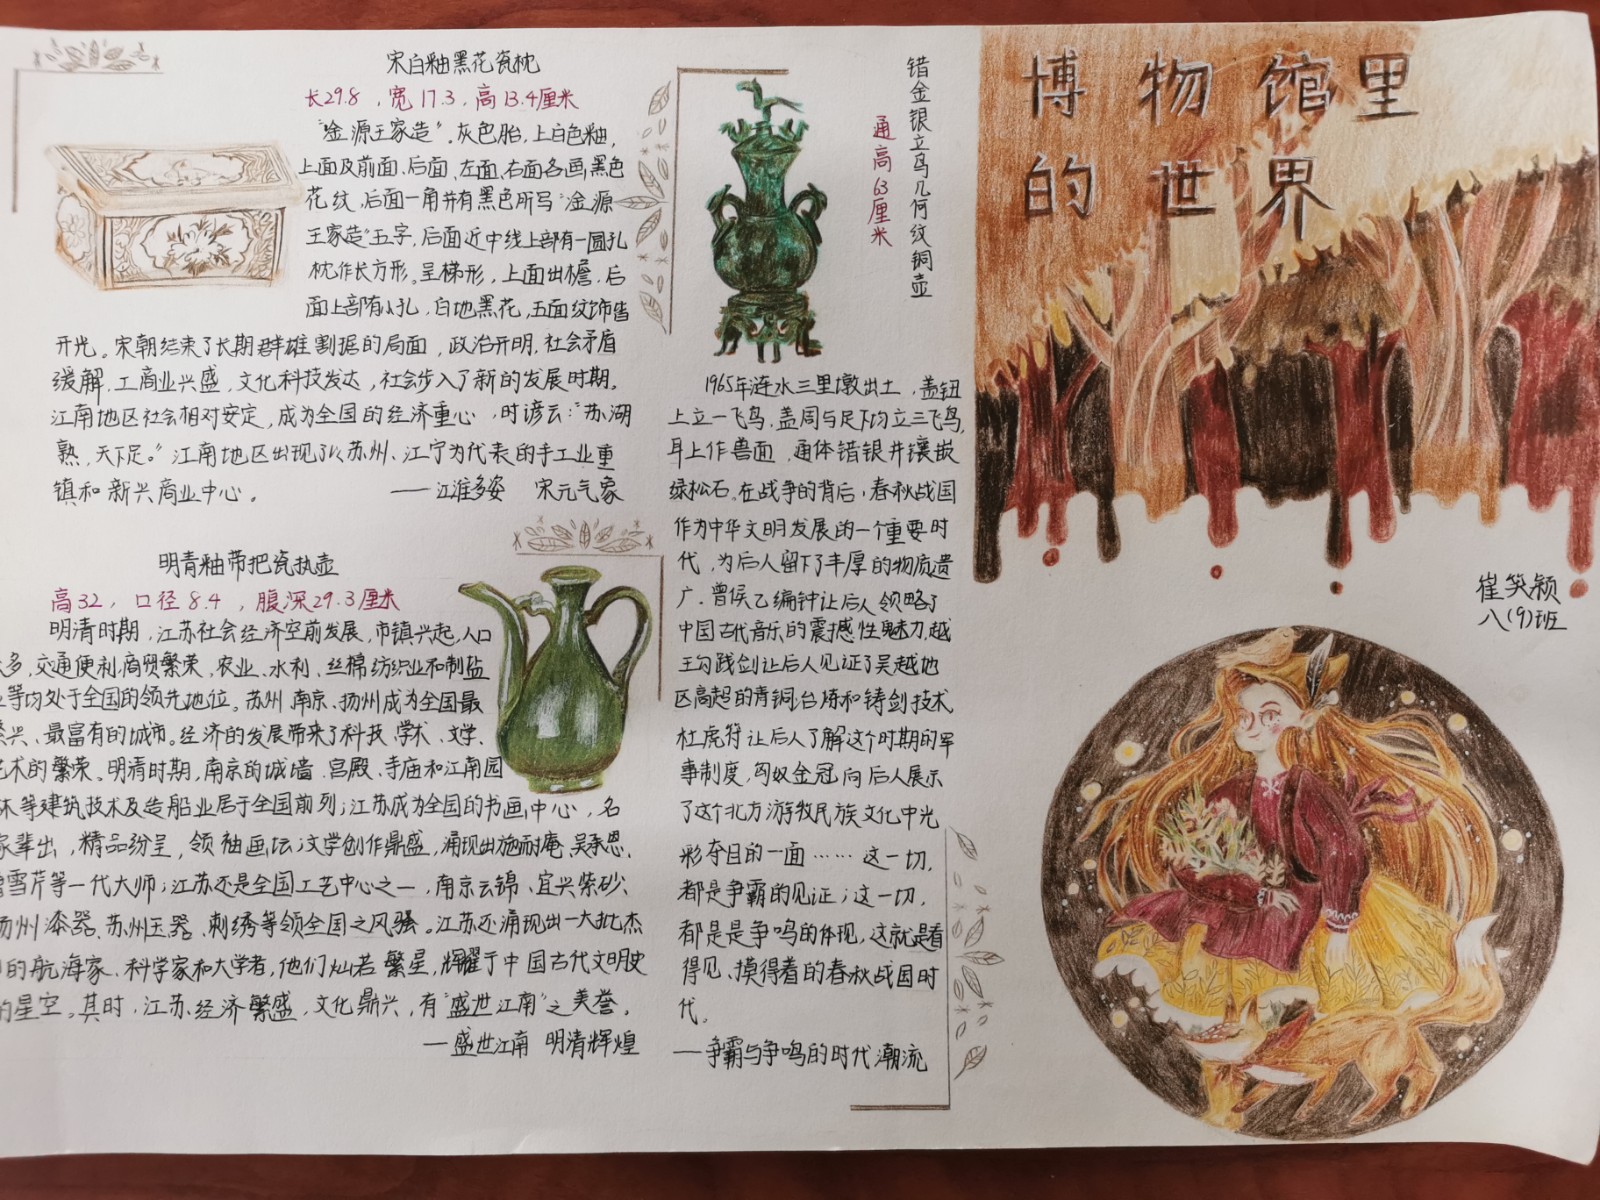 博物馆里
的世界
崔笑颖
八(9)班
宋白釉黑花瓷枕
长29.8，宽17.3，高13.4厘米
“金源王家造”。灰色胎，上白色釉，
上面及前面、后面、左面、右面各画黑色
花纹，后面一角并有黑色所写“金源
王家造”五字，后面近中线上部有一圆孔
枕作长方形。呈梯形，上面出檐，后
面上部有小孔，白地黑花，五面纹饰皆
开光。宋朝结束了长期群雄割据的局面，政治开明，社会矛盾
缓解，工商业兴盛，文化科技发达，社会步入了新的发展时期。
江南地区社会相对安定，成为全国的经济重心，时谚云：“苏湖
熟，天下足。”江南地区出现了以苏州、江宁为代表的手工业重
镇和新兴商业中心。
——江淮多姿 宋元气象
明青釉带把瓷执壶
高32，口径8.4，腹深29.3厘米
明清时期，江苏社会经济空前发展，市镇兴起，人口
多，交通便利，商贸繁荣，农业、水利、丝棉纺织业和制盐
等均处于全国的领先地位。苏州、南京、扬州成为全国最
兴、最富有的城市。经济的发展带来了科技、学术、文学、
艺术的繁荣。明清时期，南京的城墙、宫殿、寺庙和江南园
林等建筑技术及造船业居于全国前列；江苏成为全国的书画中心，名
家辈出，精品纷呈，领袖画坛；文学创作鼎盛，涌现出施耐庵、吴承恩、
曹雪芹等一代大师；江苏还是全国工艺中心之一，南京云锦、宜兴紫砂、
扬州漆器、苏州玉器、刺绣等领全国之风骚。江苏还涌现出一大批杰
的航海家、科学家和大学者，他们灿若繁星，辉耀于中国古代文明史
的星空。其时，江苏经济繁盛，文化鼎兴，有“盛世江南”之美誉。
—盛世江南 明清辉煌
错金银立鸟几何纹铜壶
通高63厘米
1965年涟水三里墩出土，盖钮
上立一飞鸟，盖周与足下均立三飞鸟，
耳上作兽面，通体错银并镶嵌
绿松石。在战争的背后，春秋战国
作为中华文明发展的一个重要时
代，为后人留下了丰厚的物质遗
广。曾侯乙编钟让后人领略了
中国古代音乐的震撼性魅力，越
王勾践剑让后人见证了吴越地
区高超的青铜冶炼和铸剑技术
杜虎符让后人了解这个时期的军
事制度，匈奴金冠向后人展示
了这个北方游牧民族文化中光
彩夺目的一面……这一切，
都是争霸的见证；这一切，
都是是争鸣的体现，这就是看
得见、摸得着的春秋战国时
代。
—争霸与争鸣的时代潮流